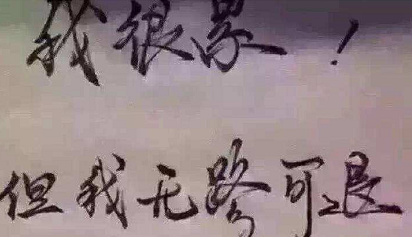 我很累！
但我无路可退